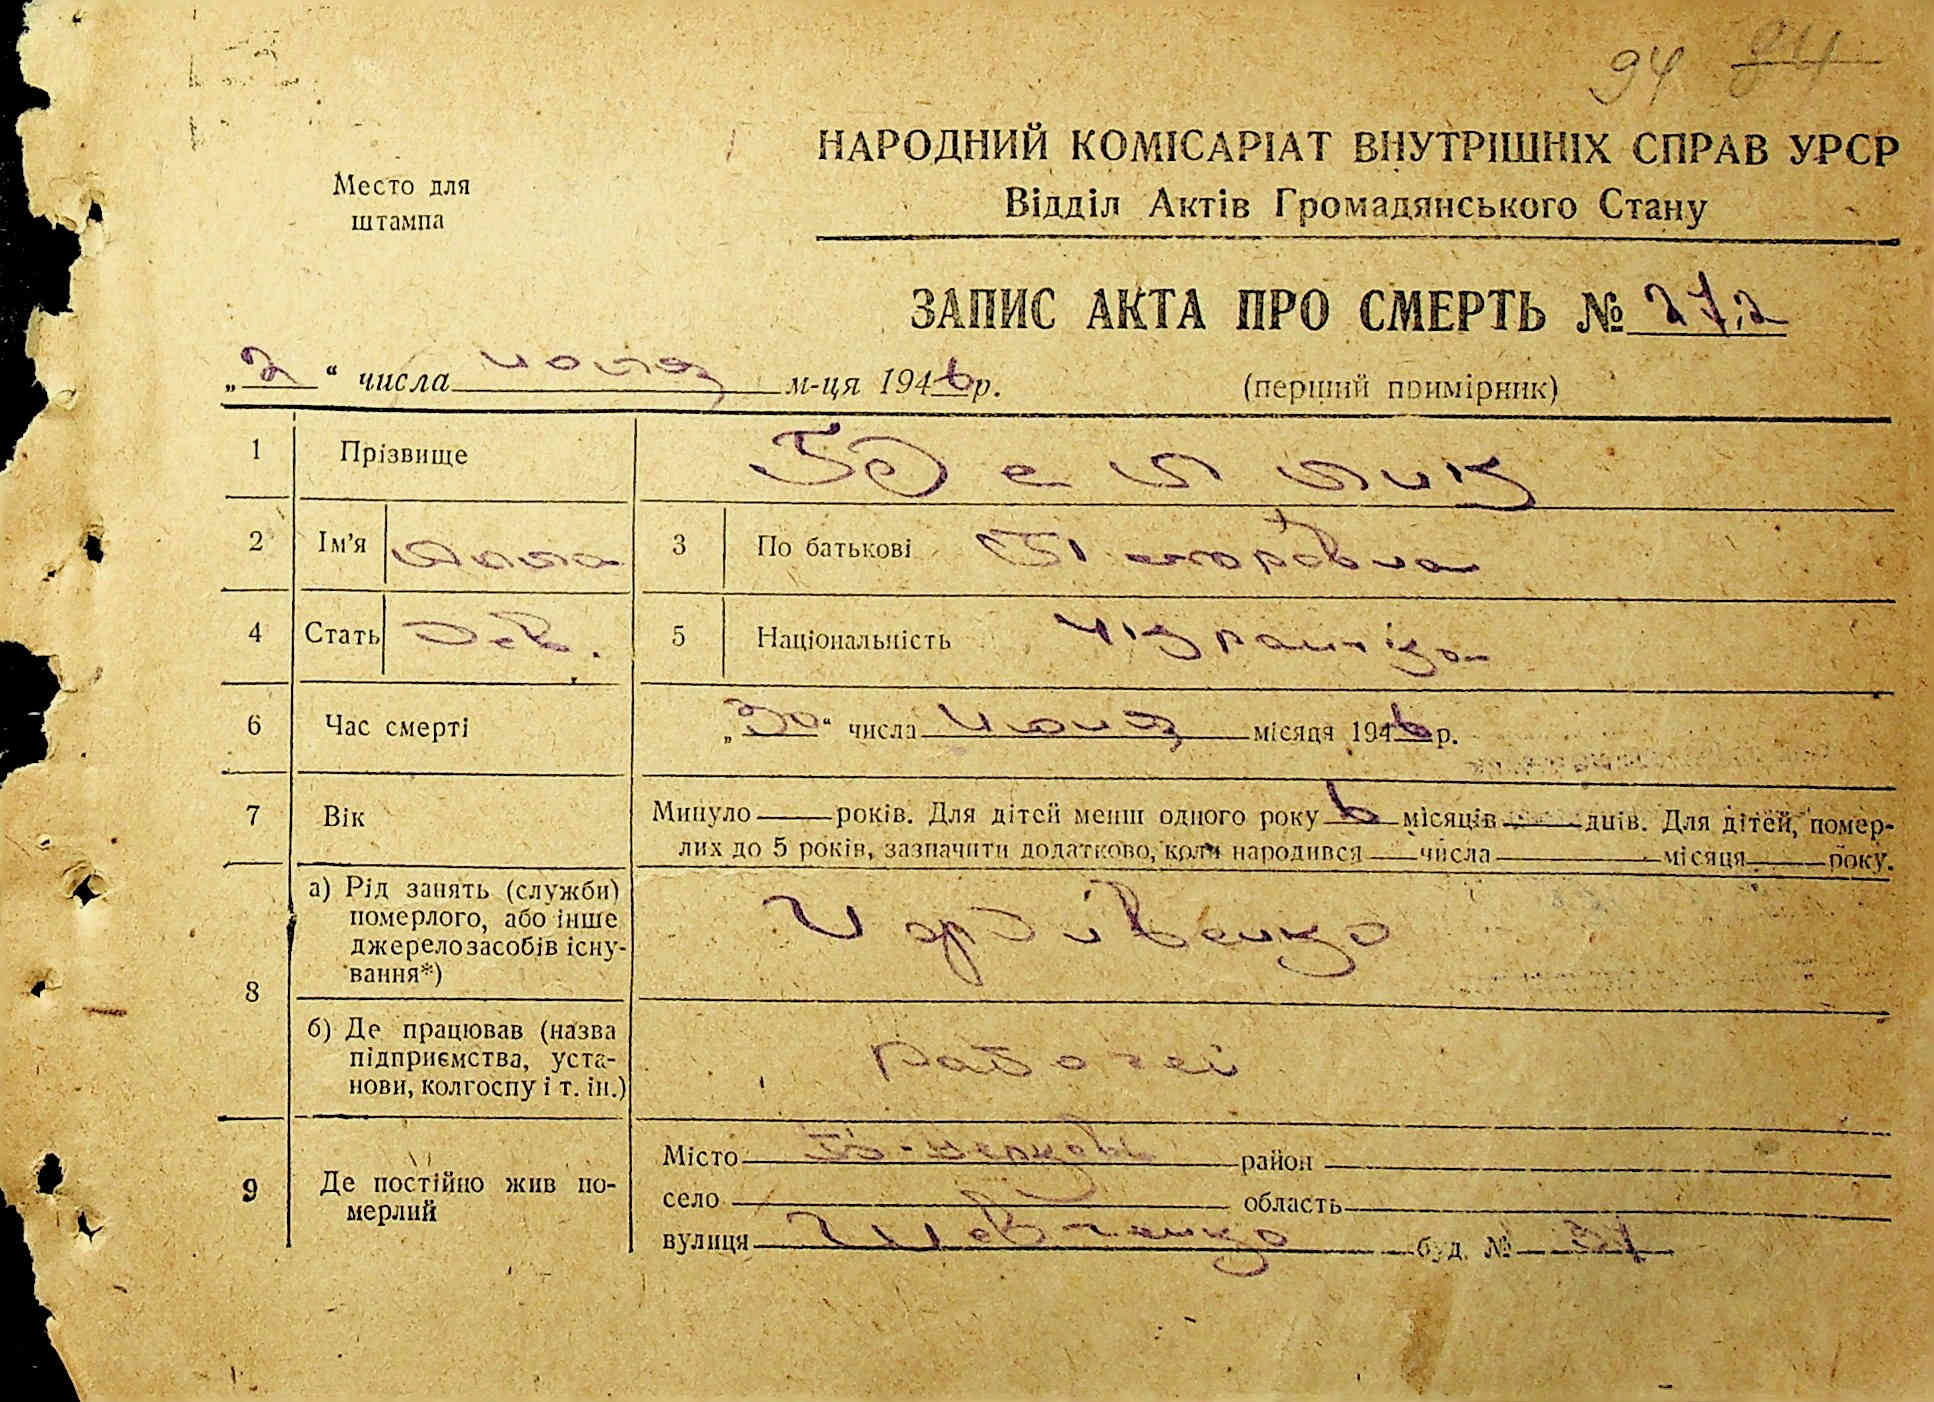 94 84
НАРОДНИЙ КОМІСАРІАТ ВНУТРІШНІХ СПРАВ УРСР
Место для
штампа
Відділ Актів Громадянського Стану
ЗАПИС АКТА ПРО СМЕРТЬ № 272
„2“ числа июля м-ця 1946 р. (перший примірник)
1 Прізвище
2 Ім'я Алла 3 По батькові
4 Стать 5 Національність українка
6 Час смерті „30“ числа Июня місяця 1946 р.
7 Вік Минуло року років. Для дітей менш одного року 6 місяців днів. Для дітей, помер-
лих до 5 років, зазначити додатково, коли народився числа місяця року.
8 а) Рід занять (служби)
померлого, або інше
джерело засобів існу-
вання*)
Иждивенка
б) Де працював (назва
підприємства, уста-
нови, колгоспу і т. ін.)
рабочей
9 Де постійно жив по-
мерлий
Місто Б-церковь район
село область
вулиця Шевченко буд. №